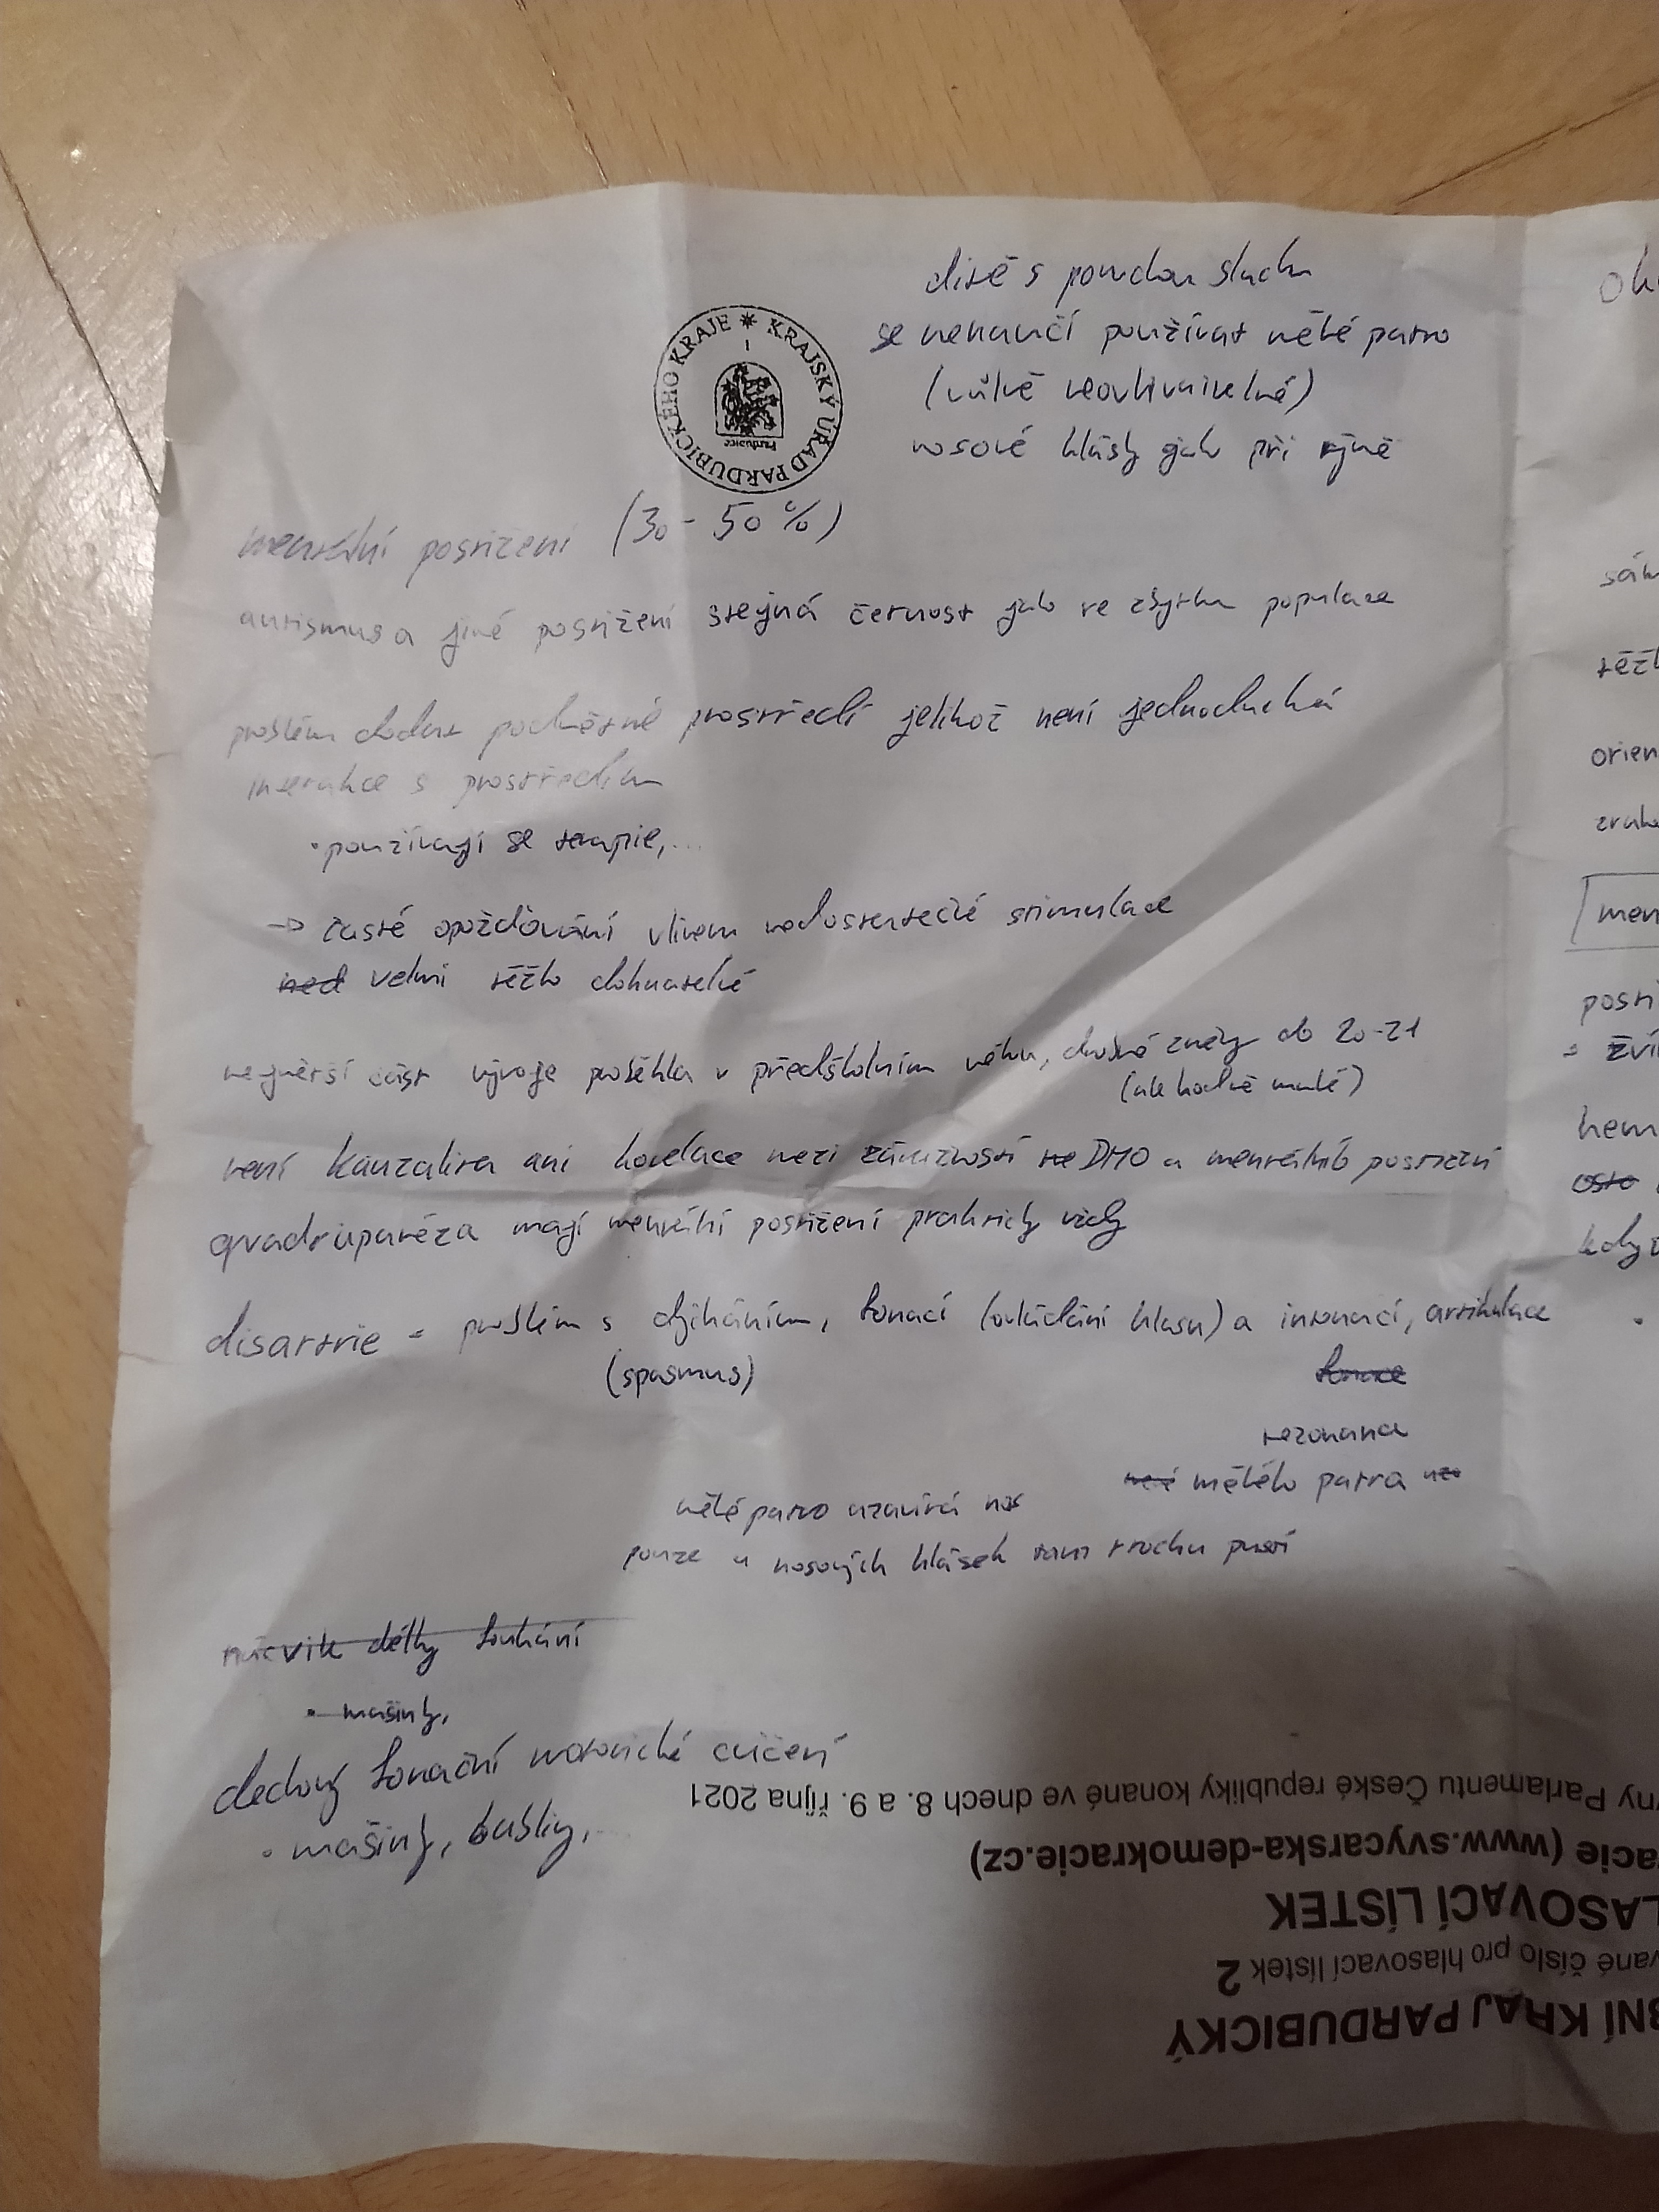 dítě s poruchou sluchu
se nenaučí používat měké patro
(vůlně neovlivnitelné)
nosové hlásky jak při rýmě
KRAJSKÝ ÚŘAD PARDUBICKÉHO KRAJE
1
Pardubice
mentální postižení (30-50%)
autismus a jiné postižení stejná četnost jak ve zbytku populace
problém dodat podnětné prostředí jelikož není jednoduchá
interakce s prostředím
• používají se terapie,...
→ časté opožďování vlivem nedostatečné stimulace
ned velmi těžko dohnatelné
největší část vývoje proběhla v předškolním věku, drobné změny do 20-21
(ale hodně malé)
není kauzalita ani korelace mezi závažností DMO a mentálního postižení
qvadruparéza mají mentální postižení prakticky vždy
disartrie = problém s dýcháním, fonací (ovládání hlasu) a intonací, artikulace
(spasmus)
fonace
rezonance
není měkého patra
měké patro uzavírá nos
pouze u nosových hlásek tam trochu pustí
nácvik délky foukání
• mašinky,
dechový fonační motorické cvičení
• mašinky, bubliny,...
Ok
sám
těžk
orien
zrak
men
posti
= zví
nem
osto
když
ny Parlamentu České republiky konané ve dnech 8. a 9. října 2021
acie (www.svycarska-demokracie.cz)
LASOVACÍ LÍSTEK
vané číslo pro hlasovací lístek 2
BNÍ KRAJ PARDUBICKÝ